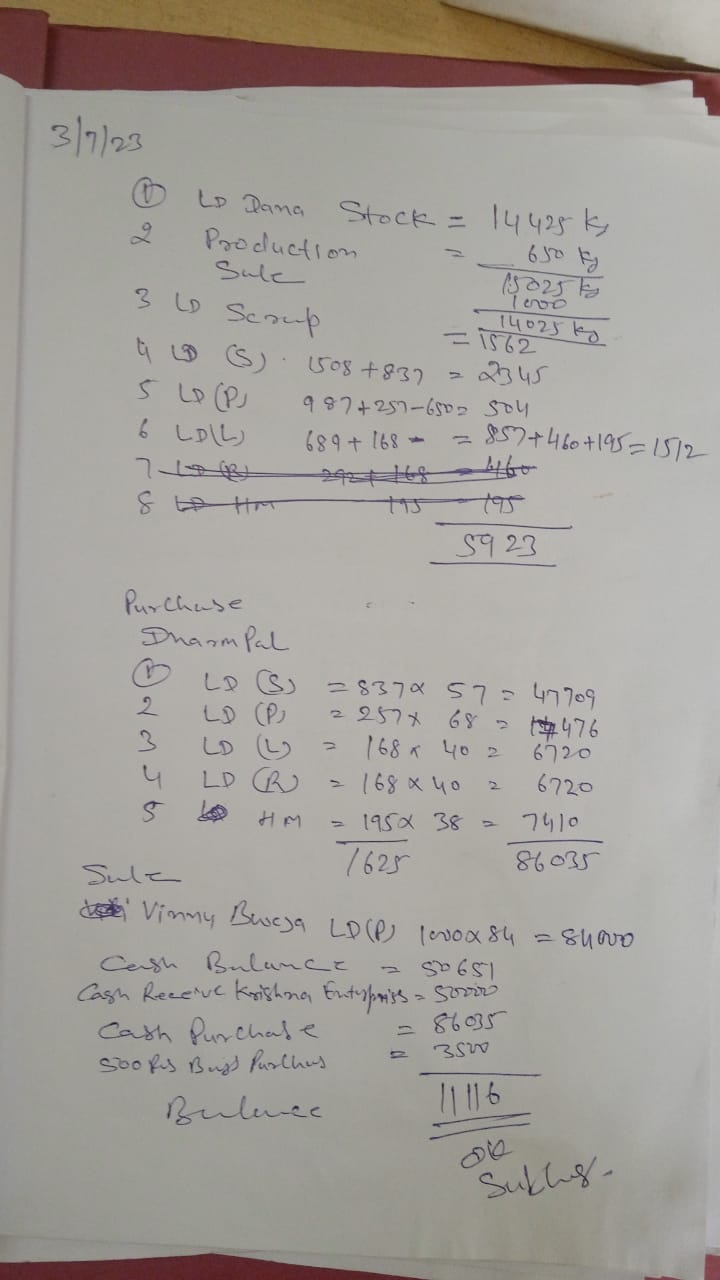 3/7/23
① LD Dana Stock = 14425 kg
2 Production = 650 kg
15025 kg
Sale 1000
14025 kg
3 LD Scrap = 1562
4 LD (S). 1508 + 837 = 2345
5 LD (P) 987+257-650= 504
6 LD(L) 689 + 168 - = 857+460+195=1512
7 LD (R) 292+ 168 = 460
8 LD HM 195 195
5923
Purchase
Dharm Pal
① LD (S) = 837x 57 = 47709
2 LD (P) = 257x 68 = 476
3 LD (L) = 168 x 40 = 6720
4 LD (R) = 168 x 40 = 6720
5 HM = 195x 38 = 7410
1625 86035
Sale
Vinny LD(P) 1000x84 = 84000
Cash Balance = 50651
Cash Receive Krishna Enterpriss = 50000
Cash Purchase = 86035
500 Pcs Bags Purchas = 3500
Balance 11116
OK